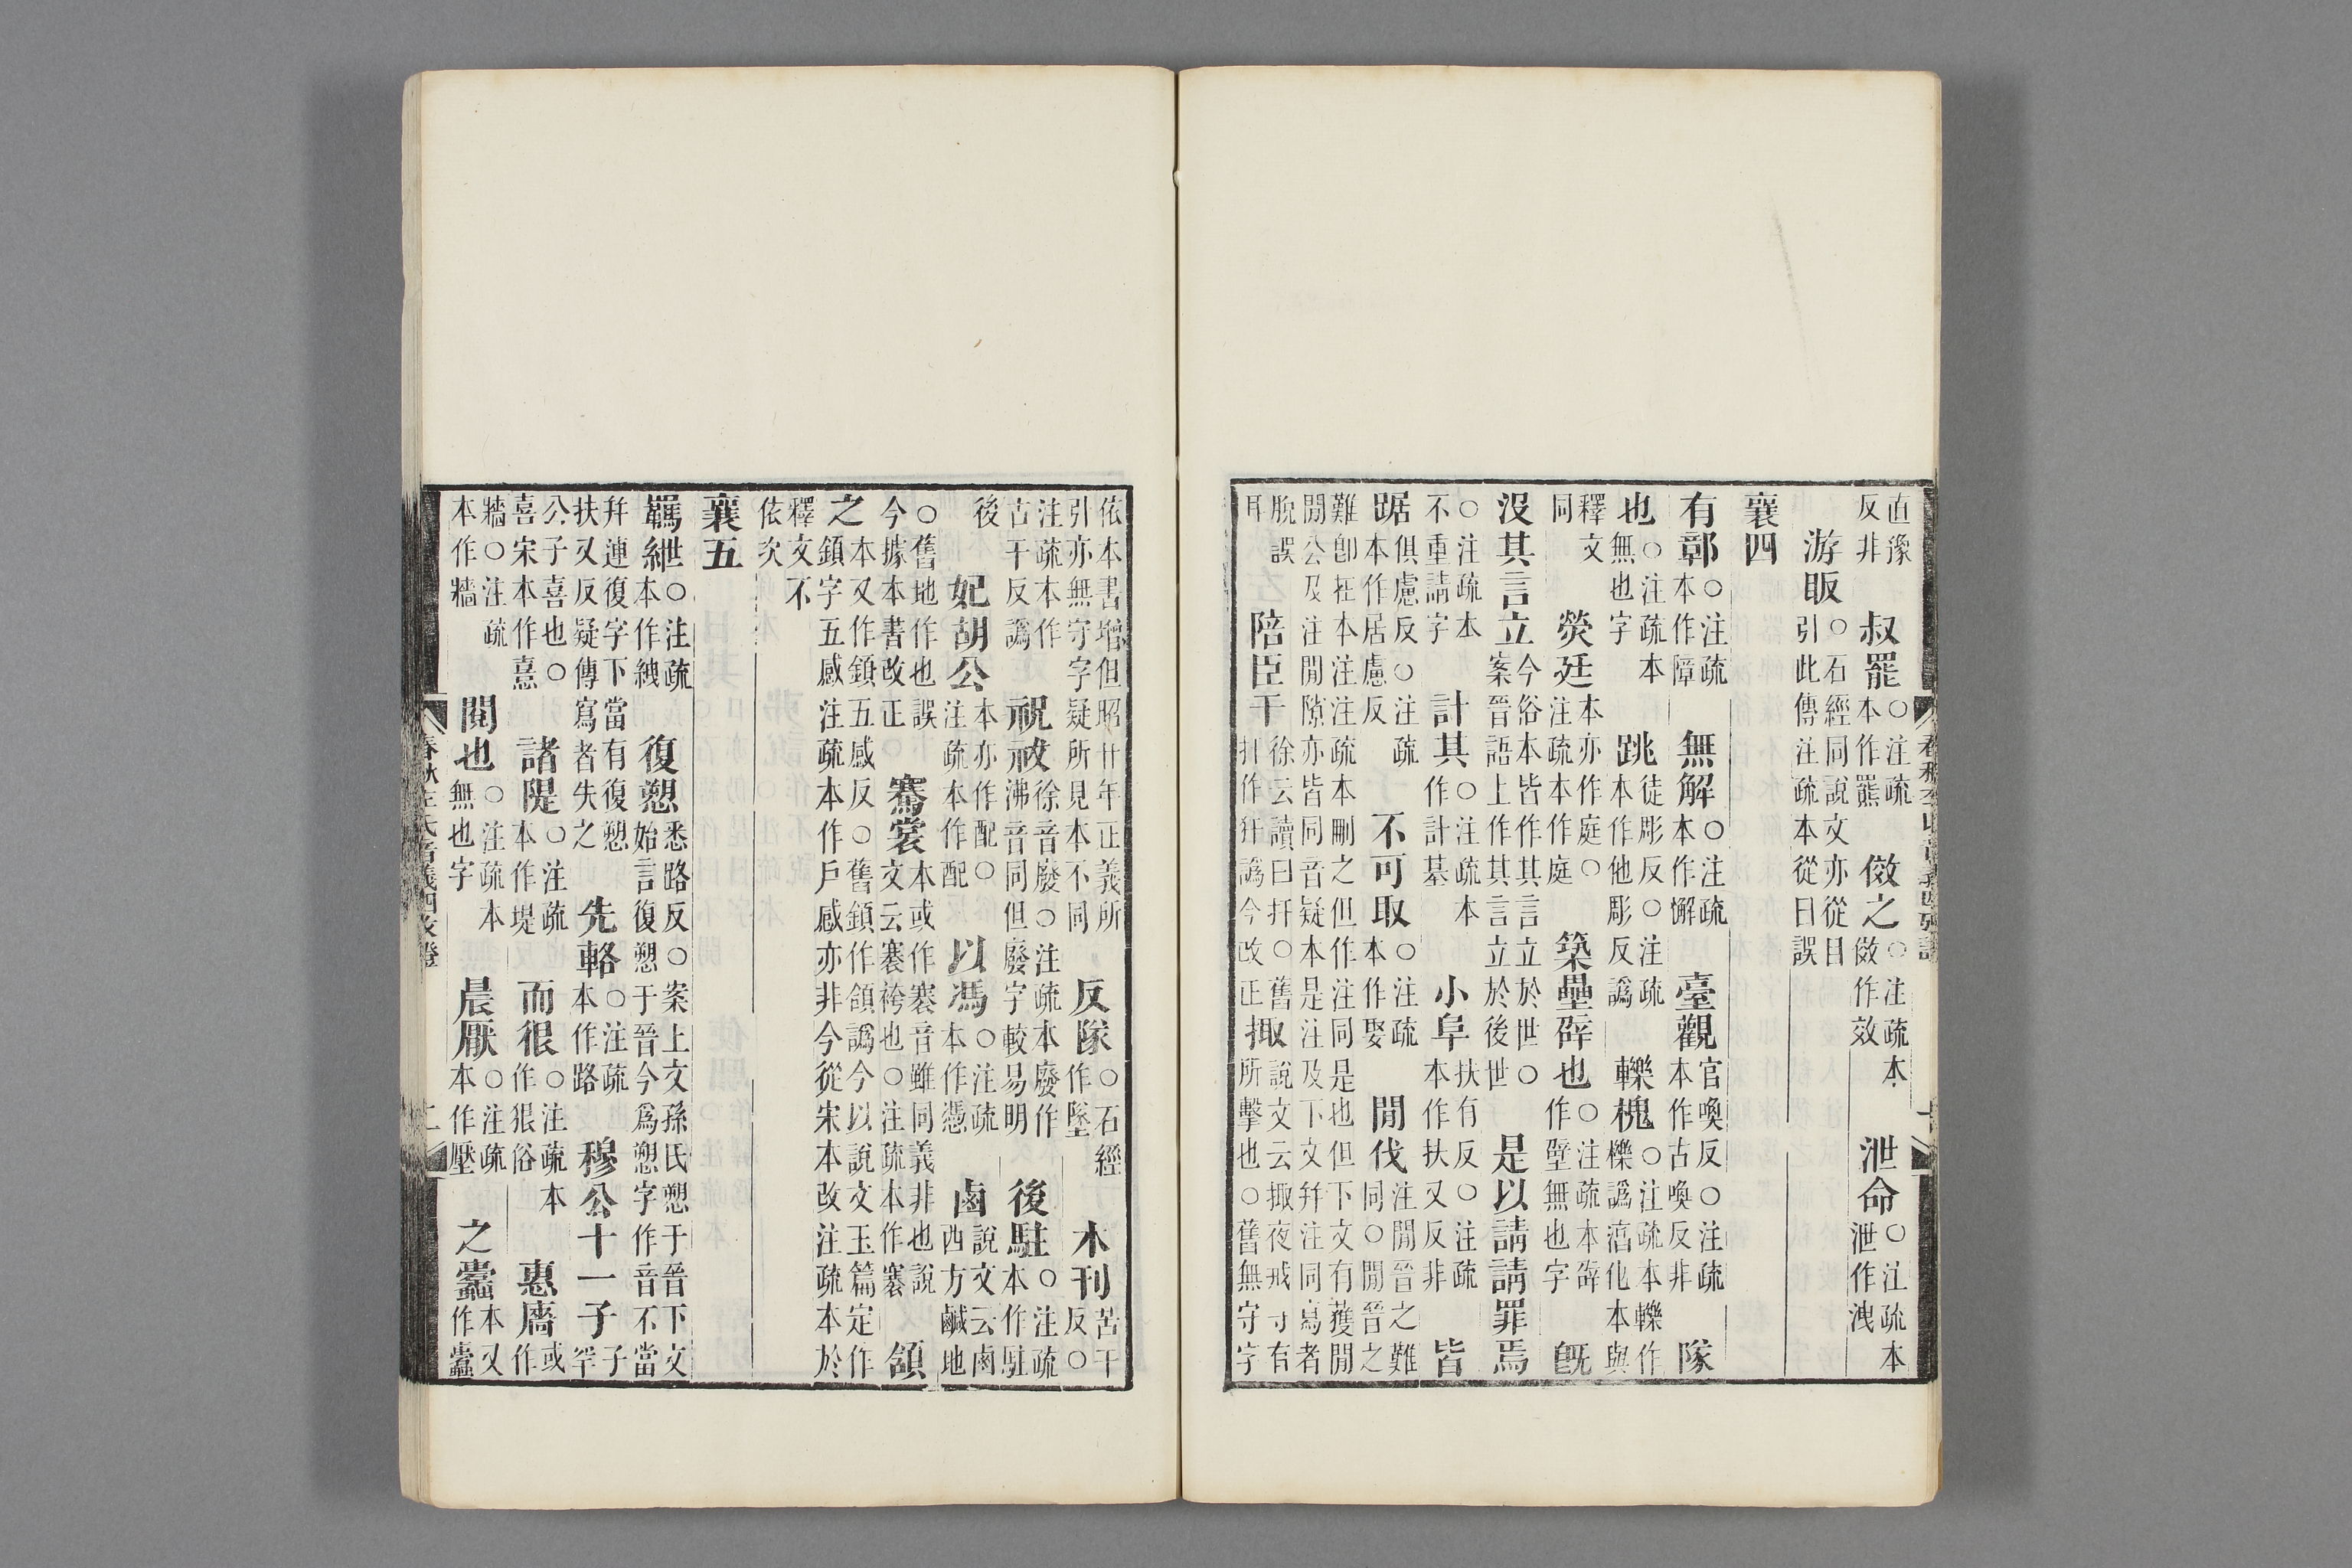 直豫反非 叔罷○注疏本作羆 儆之○注疏本儆作效 泄命○注疏本泄作洩
游眅○石經同說文亦從目引此傳注疏本從日誤
襄四
有鄣○注疏本作障 無解○注疏本作懈 臺觀官喚反○注疏本作古喚反非 隊
也○注疏本無也字 跳徒彫反○注疏本作他彫反譌 轢槐○注疏本轢作櫟譌湻化本與
釋文同 熒廷本亦作庭○注疏本作庭 築壘辟也○注疏本辟作壁無也字 旣
沒其言立今俗本皆作其言立於世○案晉語上作其言立於後世 是以請請罪焉
○注疏本不重請字 計其○注疏本作計基 小阜扶有反○注疏本作扶又反非 皆
踞俱慮反○注疏本作居慮反 不可取○注疏本作娶 閒伐注閒晉之難同○閒晉之
難卽在本注注疏本刪之但作注同是也但下文有獲閒閒公及注閒隙亦皆同音疑本是注及下文幷注同寫者
脫誤耳 陪臣干徐云讀曰扞○舊扞作犴譌今改正 掫說文云掫夜戒守有所擊也○舊無守字
春秋左氏音義四攷證 十一
依本書增但昭廿年正義所引亦無守字疑所見本不同 反隊○石經作墜 木刊苦干反○
注疏本作古干反譌 祝祓徐音廢○注疏本廢作沸音同但廢字較易明 後駐○注疏本作駐
後 妃胡公本亦作配○注疏本作配 以馮○注疏本作憑 鹵說文云鹵西方鹹地
○舊地作也誤今據本書改正 騫裳本或作褰音雖同義非也說文云褰袴也○注疏本作褰 頷
之本又作顉五感反○舊顉作頷譌今以說文玉篇定作顉字五感注疏本作戶感亦非今從宋本改注疏本於
釋文不依次
襄五
羈紲○注疏本作絏 復愬悉路反○案上文孫氏愬于晉下文始言復愬于晉今爲愬字作音不當
幷連復字下當有復愬扶又反疑傳寫者失之 先輅○注疏本作路 穆公十一子子罕
公子喜也○喜宋本作憙 諸隄○注疏本作堤 而很○注疏本作狠俗 惠廧或作
牆○注疏本作牆 閱也○注疏本無也字 晨厭○注疏本作壓 之蠹本又作蠧
春秋左氏音義四攷證